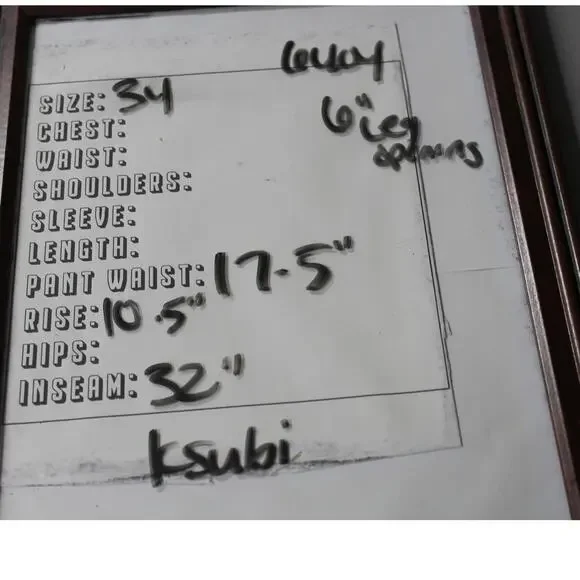 6404
SIZE: 34
6" Leg
opening
CHEST:
WAIST:
SHOULDERS:
SLEEVE:
LENGTH:
PANT WAIST: 17.5"
RISE: 10.5"
HIPS:
INSEAM: 32"
ksubi